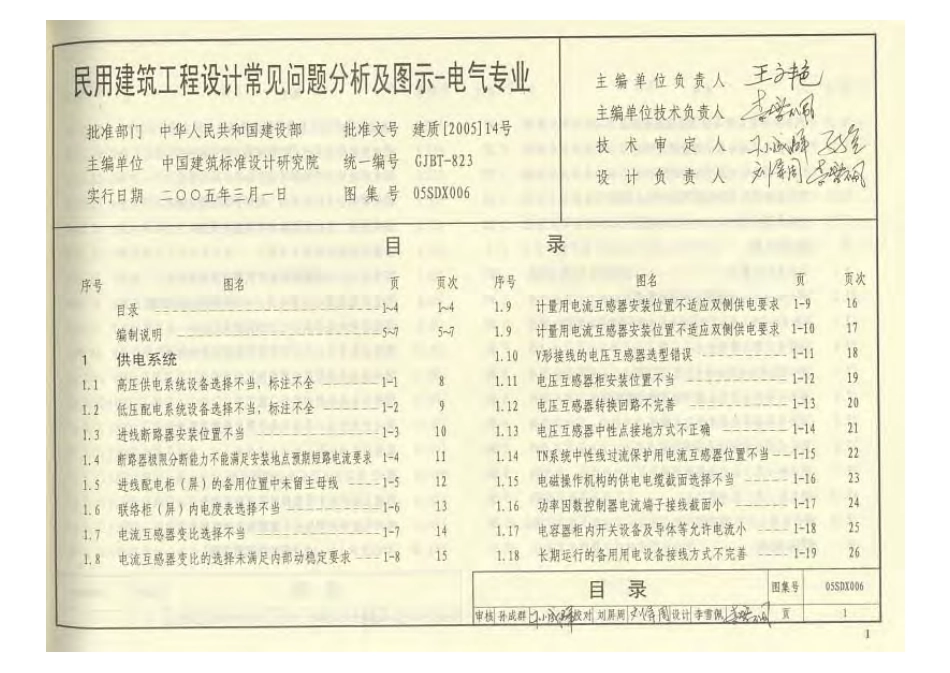 民用建筑工程设计常见问题分析及图示-电气专业
批准部门 中华人民共和国建设部 批准文号 建质[2005]14号
主编单位 中国建筑标准设计研究院 统一编号 GJBT-823
实行日期 二〇〇五年三月一日 图集号 05SDX006
主编单位负责人
主编单位技术负责人
技术审定人
设计负责人
目 录
序号 图名 页 页次
目录 1-4 1-4
编制说明 5-7 5-7
1 供电系统
1.1 高压供电系统设备选择不当，标注不全 1-1 8
1.2 低压配电系统设备选择不当，标注不全 1-2 9
1.3 进线断路器安装位置不当 1-3 10
1.4 断路器极限分断能力不能满足安装地点预期短路电流要求 1-4 11
1.5 进线配电柜（屏）的备用位置中未留主母线 1-5 12
1.6 联络柜（屏）内电度表选择不当 1-6 13
1.7 电流互感器变比选择不当 1-7 14
1.8 电流互感器变比的选择未满足内部动稳定要求 1-8 15
序号 图名 页 页次
1.9 计量用电流互感器安装位置不适应双侧供电要求 1-9 16
1.9 计量用电流互感器安装位置不适应双侧供电要求 1-10 17
1.10 V形接线的电压互感器选型错误 1-11 18
1.11 电压互感器柜安装位置不当 1-12 19
1.12 电压互感器转换回路不完善 1-13 20
1.13 电压互感器中性点接地方式不正确 1-14 21
1.14 TN系统中性线过流保护用电流互感器位置不当 1-15 22
1.15 电磁操作机构的供电电缆截面选择不当 1-16 23
1.16 功率因数控制器电流端子接线截面小 1-17 24
1.17 电容器柜内开关设备及导体等允许电流小 1-18 25
1.18 长期运行的备用用电设备接线方式不完善 1-19 26
目 录 图集号 05SDX006
审核 孙成群 校对 刘屏周 设计 李雪佩 页 1
1